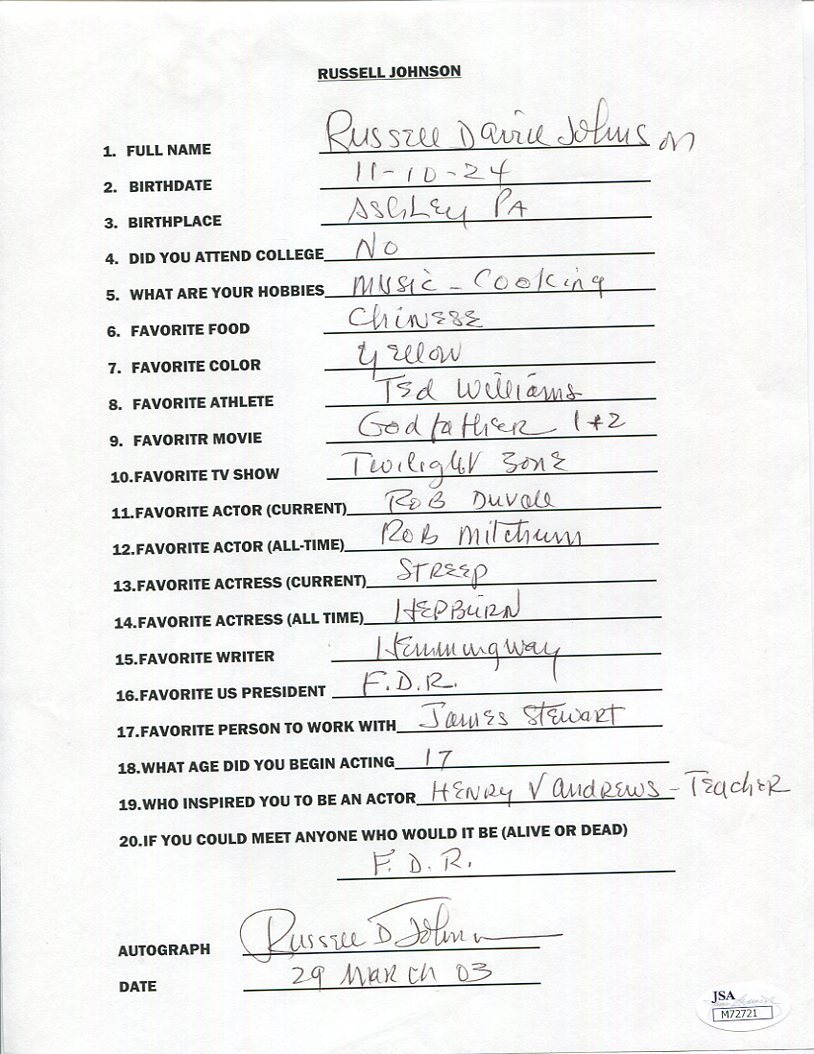 RUSSELL JOHNSON
1. FULL NAME Russell David Johnson
2. BIRTHDATE 11-10-24
3. BIRTHPLACE ASHLEY PA
4. DID YOU ATTEND COLLEGE NO
5. WHAT ARE YOUR HOBBIES MUSIC - COOKING
6. FAVORITE FOOD CHINESE
7. FAVORITE COLOR YELLOW
8. FAVORITE ATHLETE TED WILLIAMS
9. FAVORITR MOVIE GODFATHER 1+2
10.FAVORITE TV SHOW TWILIGHT ZONE
11.FAVORITE ACTOR (CURRENT) ROB DUVALL
12.FAVORITE ACTOR (ALL-TIME) ROB MITCHUM
13.FAVORITE ACTRESS (CURRENT) STREEP
14.FAVORITE ACTRESS (ALL TIME) HEPBURN
15.FAVORITE WRITER Hemmingway
16.FAVORITE US PRESIDENT F.D.R.
17.FAVORITE PERSON TO WORK WITH JAMES STEWART
18.WHAT AGE DID YOU BEGIN ACTING 17
19.WHO INSPIRED YOU TO BE AN ACTOR HENRY V ANDREWS - TEACHER
20.IF YOU COULD MEET ANYONE WHO WOULD IT BE (ALIVE OR DEAD)
F.D.R.
AUTOGRAPH Russell D Johnson
DATE 29 MARCH 03
JSA
M72721